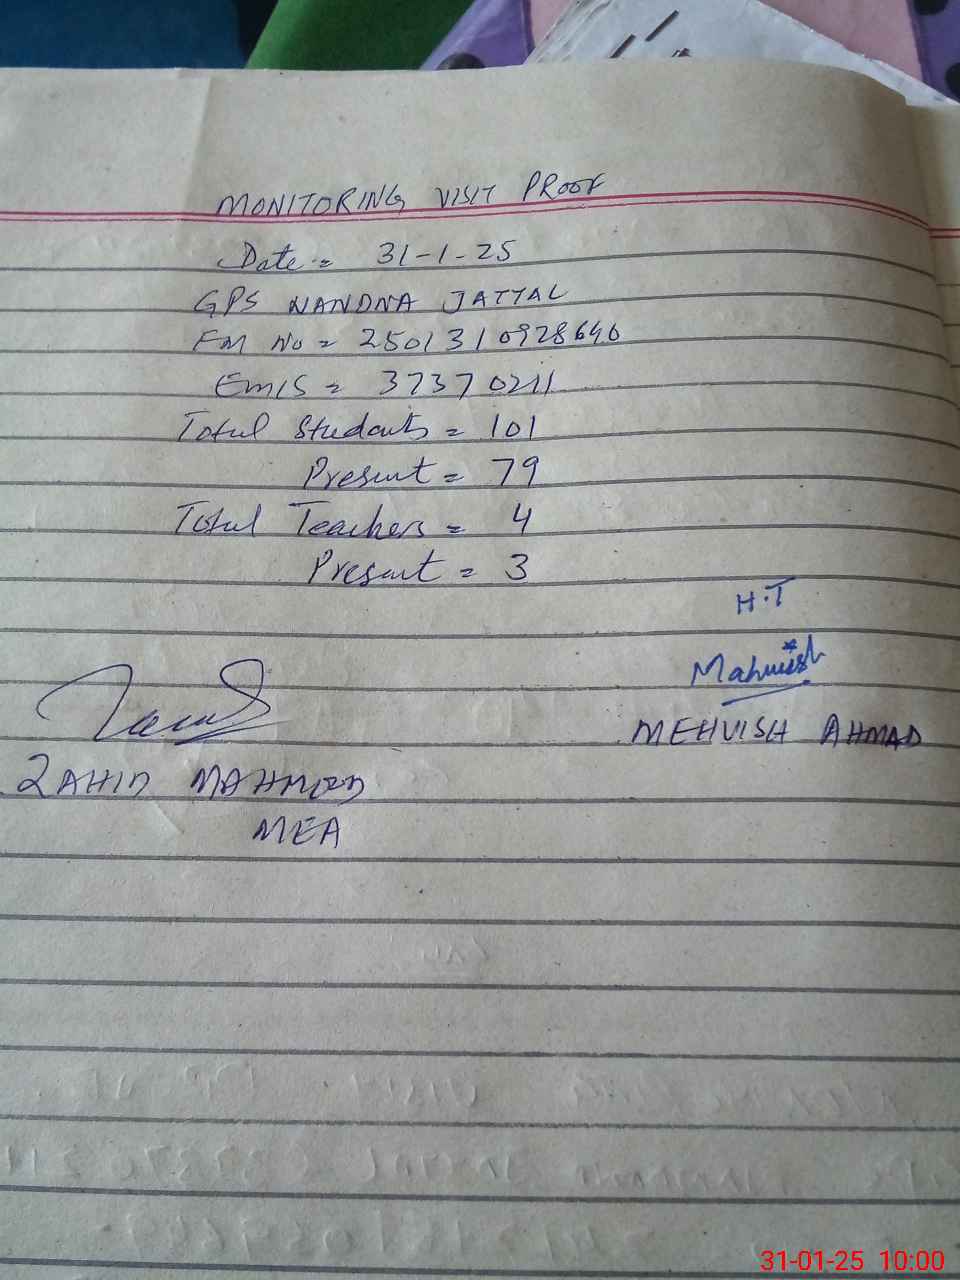 MONITORING VISIT PROOF
Date = 31-1-25
GPS NANDNA JATTAL
FM No = 2501310928640
EMIS = 37370211
Total Students = 101
Present = 79
Total Teachers = 4
Present = 3
H.T
Mahwish
MEHVISH AHMAD
ZAHID MAHMOOD
MEA
31-01-25 10:00